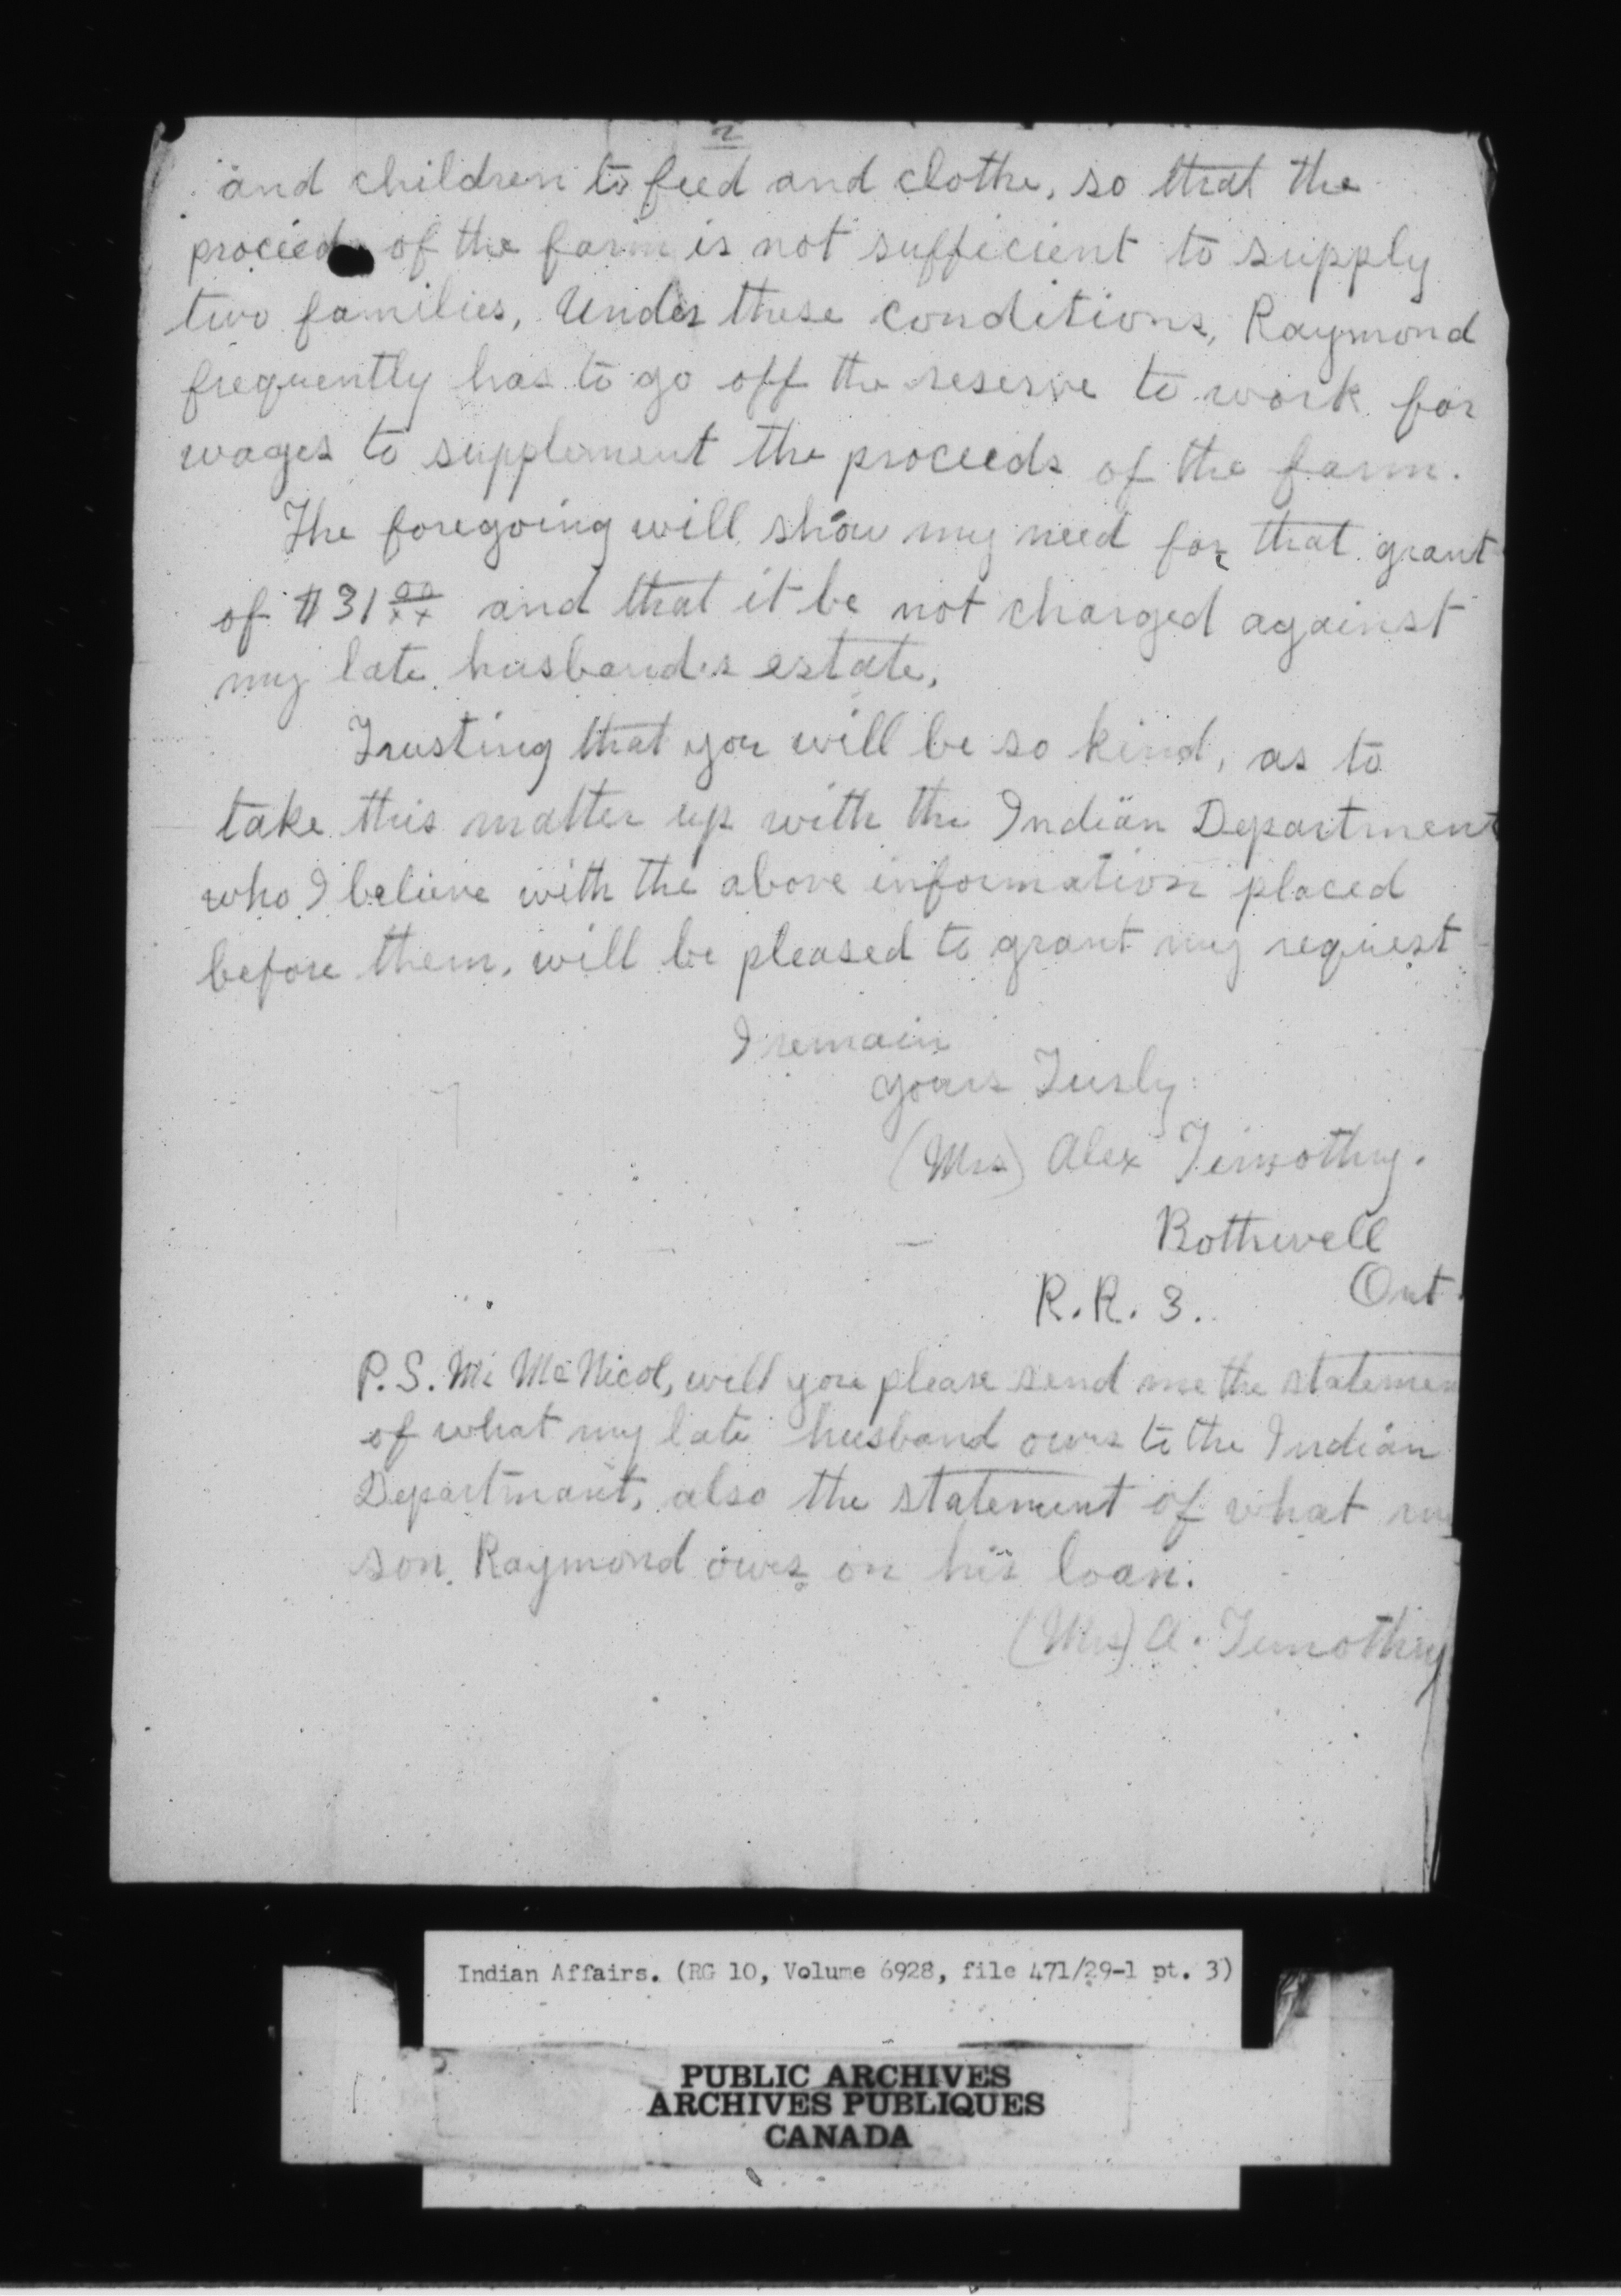 2
and children to feed and clothe, so that the
proceeds of the farm is not sufficient to supply
two families, Under these conditions, Raymond
frequently has to go off the reserve to work for
wages to supplement the proceeds of the farm.
The foregoing will show my need for that grant
of $31 00/xx and that it be not charged against
my late husband's estate,
Trusting that you will be so kind, as to
take this matter up with the Indian Department
who I believe with the above information placed
before them, will be pleased to grant my request
I remain
yours Turly
(Mrs) Alex Timothy.
Bothwell
Ont.
R.R. 3.
P.S. Mr McNicol, will you please send me the statemen
of what my late husband owes to the Indian
Department, also the statement of what my
son Raymond owes on his loan.
(Mrs) A. Timothy
Indian Affairs. (RG 10, Volume 6928, file 471/29-1 pt. 3)
PUBLIC ARCHIVES
ARCHIVES PUBLIQUES
CANADA